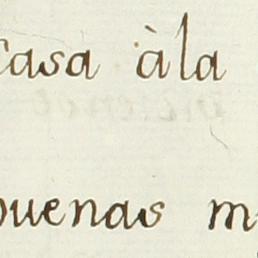 casa àla
buenas m